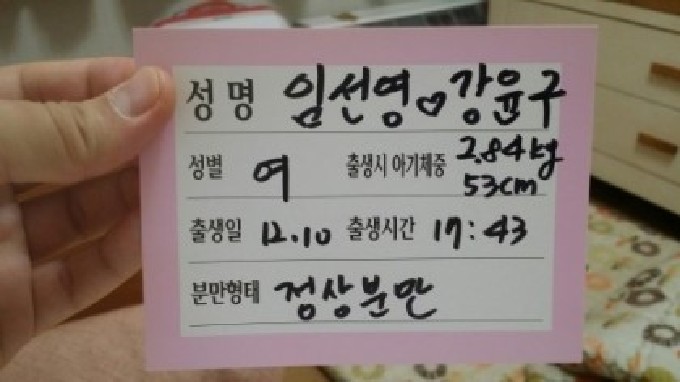 성명 임선영♡강윤구
성별 여 출생시 아기체중 2.84kg
53cm
출생일 12.10 출생시간 17:43
분만형태 정상분만